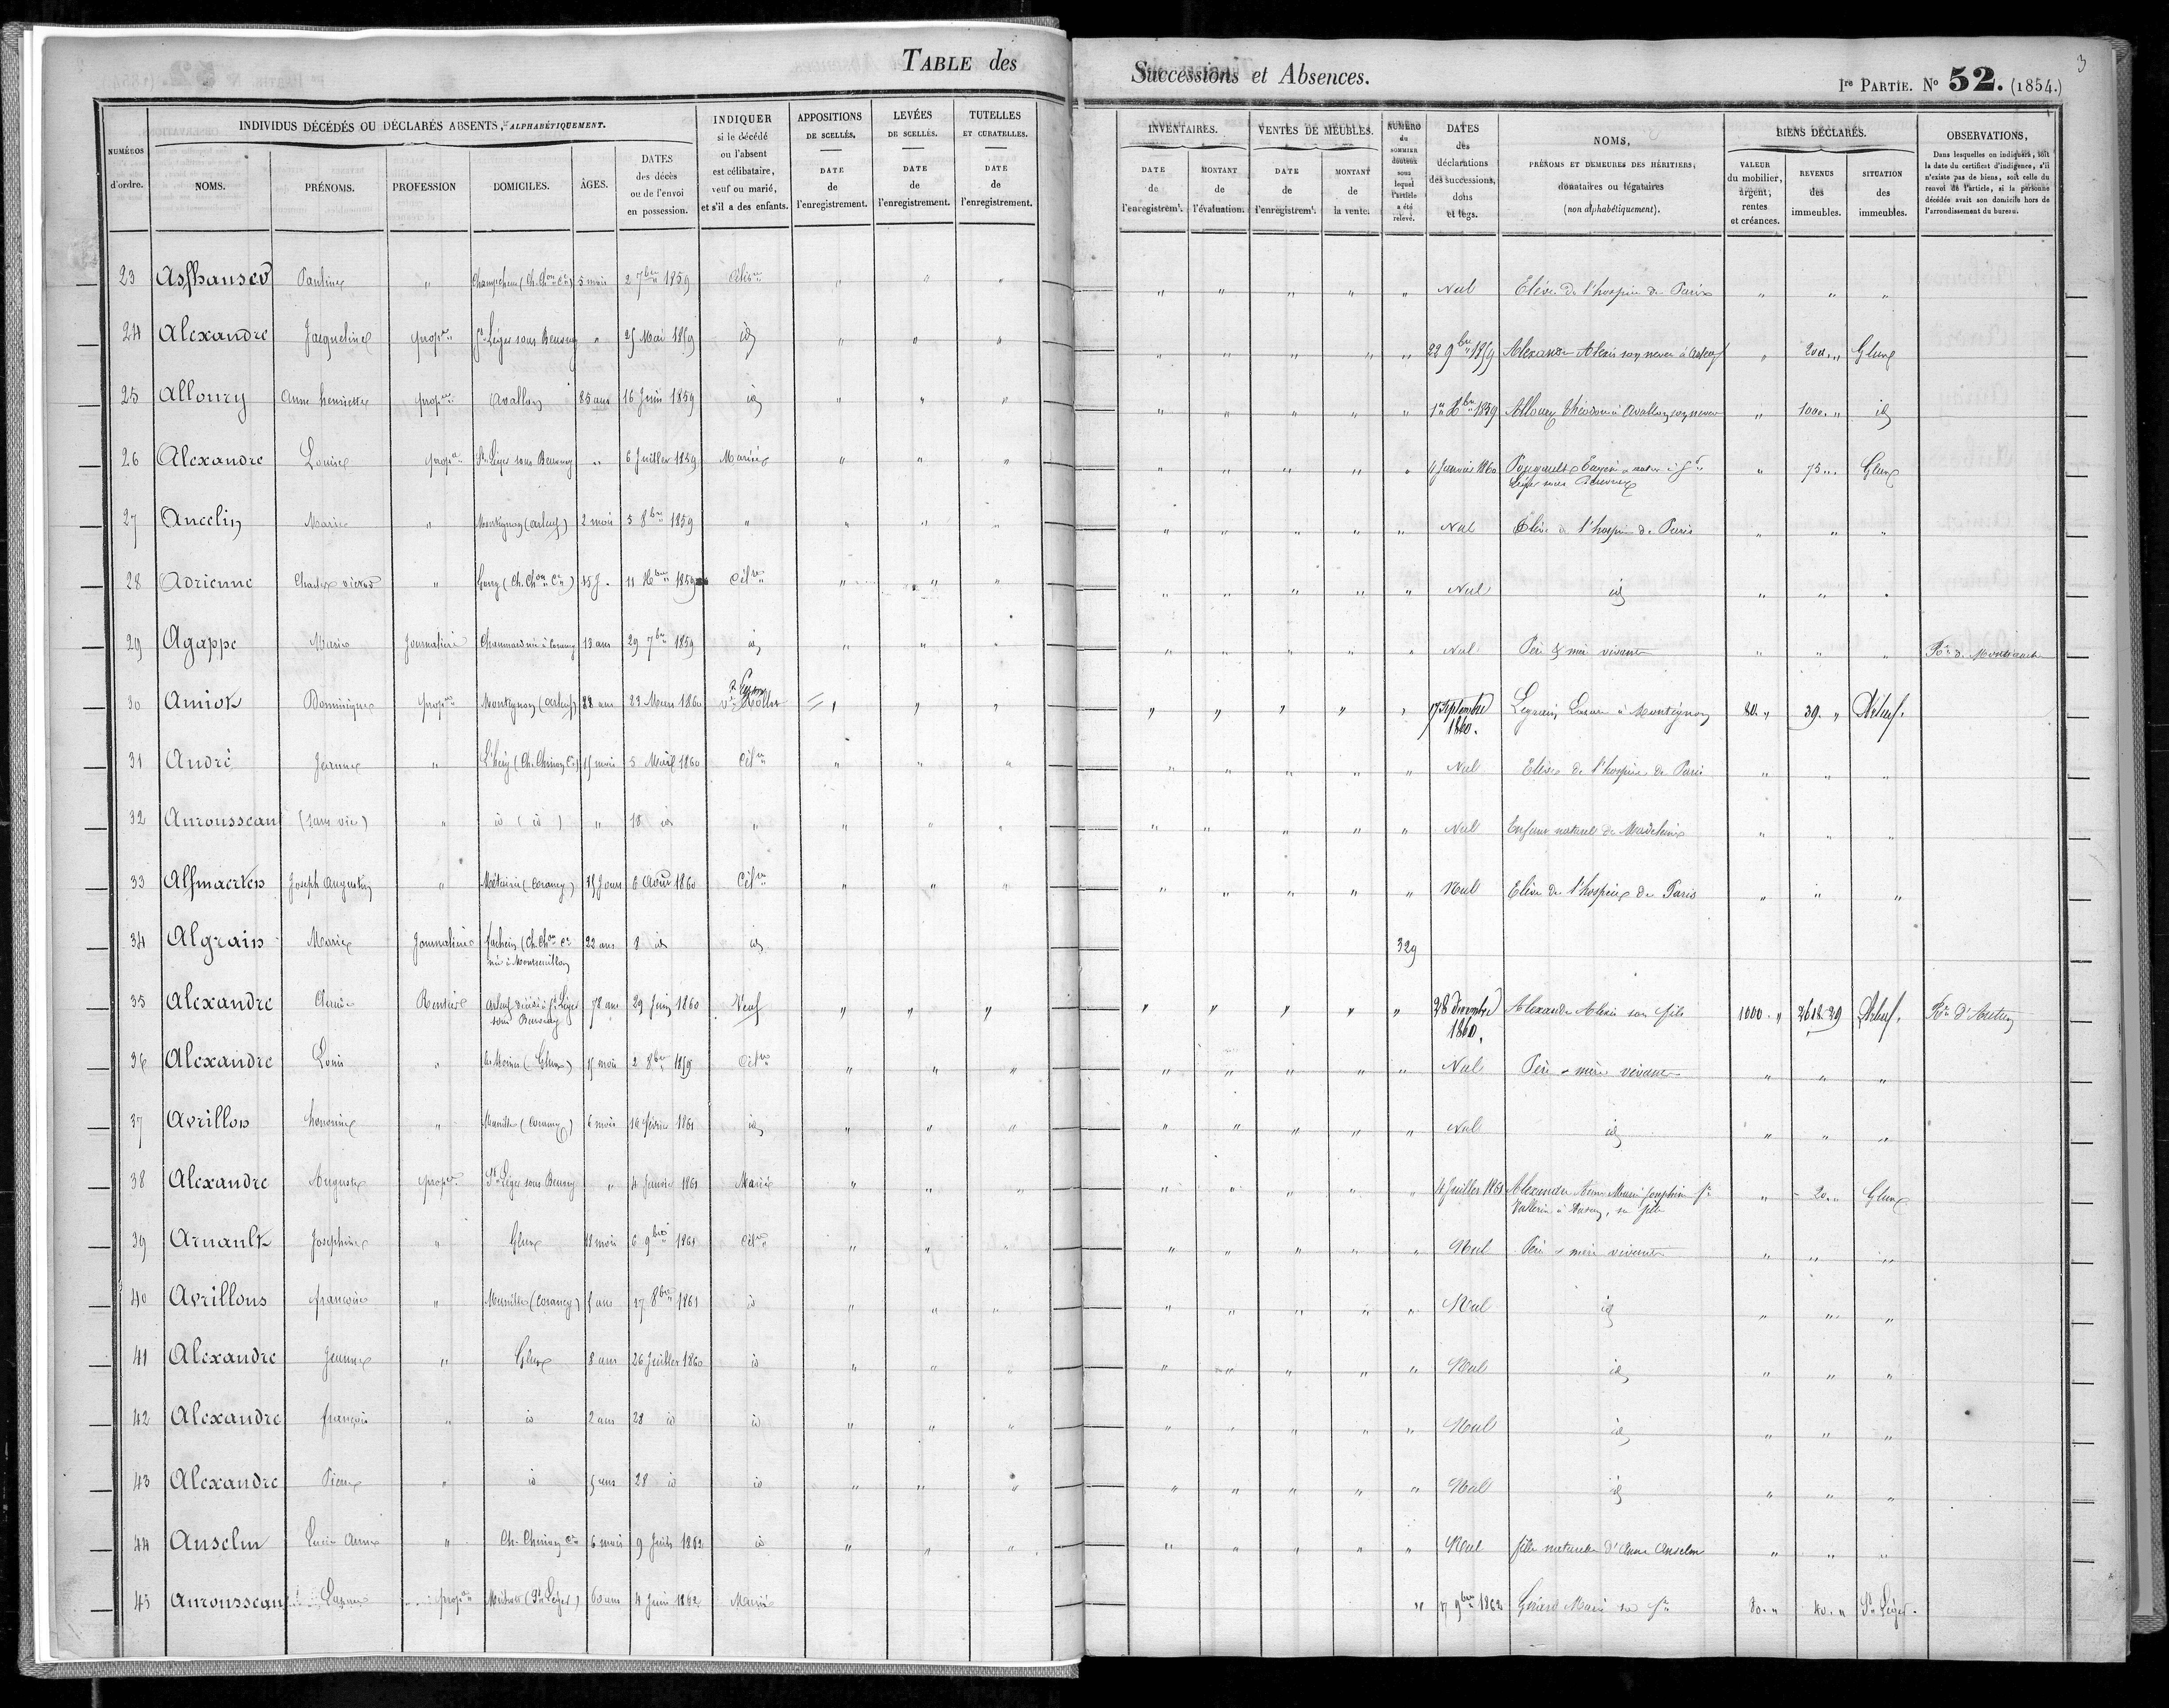 TABLE des Successions et Absences.
3
Ire PARTIE. No 52. (1854.)
NUMÉROS d'ordre.
INDIVIDUS DÉCÉDÉS OU DÉCLARÉS ABSENTS, ALPHABÉTIQUEMENT.
NOMS.
PRÉNOMS.
PROFESSION
DOMICILES.
ÂGES.
DATES des décès ou de l'envoi en possession.
INDIQUER si le décédé ou l'absent est célibataire, veuf ou marié, et s'il a des enfants.
APPOSITIONS DE SCELLÉS. DATE de l'enregistrement.
LEVÉES DE SCELLÉS. DATE de l'enregistrement.
TUTELLES ET CURATELLES. DATE de l'enregistrement.
INVENTAIRES. DATE de l'enregistremt. MONTANT de l'évaluation.
VENTES DE MEUBLES. DATE de l'enregistremt. MONTANT de la vente.
NUMÉRO du SOMMIER douteux sous lequel l'article a été relevé.
DATES des déclarations des successions, dons et legs.
NOMS, PRÉNOMS ET DEMEURES DES HÉRITIERS, donataires ou légataires (non alphabétiquement).
BIENS DÉCLARÉS.
VALEUR du mobilier, argent, rentes et créances.
REVENUS des immeubles.
SITUATION des immeubles.
OBSERVATIONS,
Dans lesquelles on indiquera, soit la date du certificat d'indigence, s'il n'existe pas de biens, soit celle du renvoi de l'article, si la personne décédée avait son domicile hors de l'arrondissement du bureau.
23 Pauline " 5 mois 2 7bre 1859 " " " " " " " " Nul Elève de l'hospice de Paris " " "
24 Alexandre Jacqueline propre St Léger sous Beuvray " 25 Mai 1859 id " " " " " " " " 22 9bre 1859 Alexandre Alexis son neveu à " 200 " Glux
25 Alloury Anne henriette propre Avallon 85 ans 16 Juin 1859 id " " " " " " " " 1er Xbre 1859 Alloury Théodore à Avallon son neveu " 1000 " id
26 Alexandre Louise propre St Léger sous Beuvray " 6 Juillet 1859 Mariée " " " " " " " " 4 Janvier 1860 à St Léger sous Beuvray " 75 " Glux
27 Ancelin Marie " Montignon (arleuf) 2 mois 5 8bre 1859 " " " " " " " " " Nul Elève de l'hospice de Paris " " "
28 Adrienne Charles victor " (Ch. Chon Cne) 15 J. 11 Xbre 1859 Célre " " " " " " " " Nul id " " "
29 Agappe Marie Journalière 13 ans 29 7bre 1859 id " " " " " " " " Nul Père & mère vivants " " "
30 Amiot Dominique propre Montignon (arleuf) 23 Mars 1860 " " " " " " " " 17 Septembre 1860. Lazare à Montignon 80 " 39 " Arleuf.
31 André Jeanne " (Ch. Chinon Cne) 15 mois 5 1860 Célre " " " " " " " " Nul Elève de l'hospice de Paris " " "
32 Aurousseau (sans vie) " id (id) " 18 id " " " " " " " " " Nul Enfant naturel de Madeleine " " "
33 Alsmaerten Joseph Augustin " Métairie (Corancy) 15 Jours 6 Août 1860 Célre " " " " " " " " Nul Elève de l'hospice de Paris " " "
34 Algrain Marie Journalière (Ch. Chon Cne née à Montreuillon) 22 ans 8 id id 329
35 Alexandre Rentier Arleuf décédé à St Léger sous Beuvray 78 ans 29 Juin 1860 Veuf " " " " " " " " 28 Décembre 1860. Alexandre Alexis son fils 1000 " 2618.39 Arleuf. d'Autun
36 Alexandre Louis " (Glux) 15 mois 2 8bre 1859 Célre " " " " " " " " Nul Père & mère vivants " " "
37 Avrillon honorine " (Corancy) 6 mois 16 février 1861 id " " " " " " " " Nul id " " "
38 Alexandre Auguste propre St Léger sous Beuvray " 4 Janvier 1861 Marié " " " " " " " " 4 Juillet 1861 Alexandre Anne Marie Josephine à sa fille " 20 " Glux
39 Arnault Josephine " Glux 18 mois 6 9bre 1861 Célre " " " " " " " " Nul Père & mère vivants " " "
40 Avrillons françoise " (Corancy) 17 8bre 1861 id " " " " " " " " Nul id " " "
41 Alexandre Jeanne " Glux 8 ans 26 Juillet 1860 id " " " " " " " " Nul id " " "
42 Alexandre françois " id 2 ans 28 id id " " " " " " " " Nul id " " "
43 Alexandre Pierre " id 5 ans 28 id id " " " " " " " " Nul id " " "
44 Anselm Lucie Anne " Ch. Chinon Cne 6 mois 9 Juin 1862 id " " " " " " " " Nul fille naturelle d'Anne Anselm " " "
45 Aurousseau Lazare propre (St Léger) 60 ans 4 Juin 1862 Marié " 17 9bre 1862 Marie sa fe 80 " 40 " St Léger.